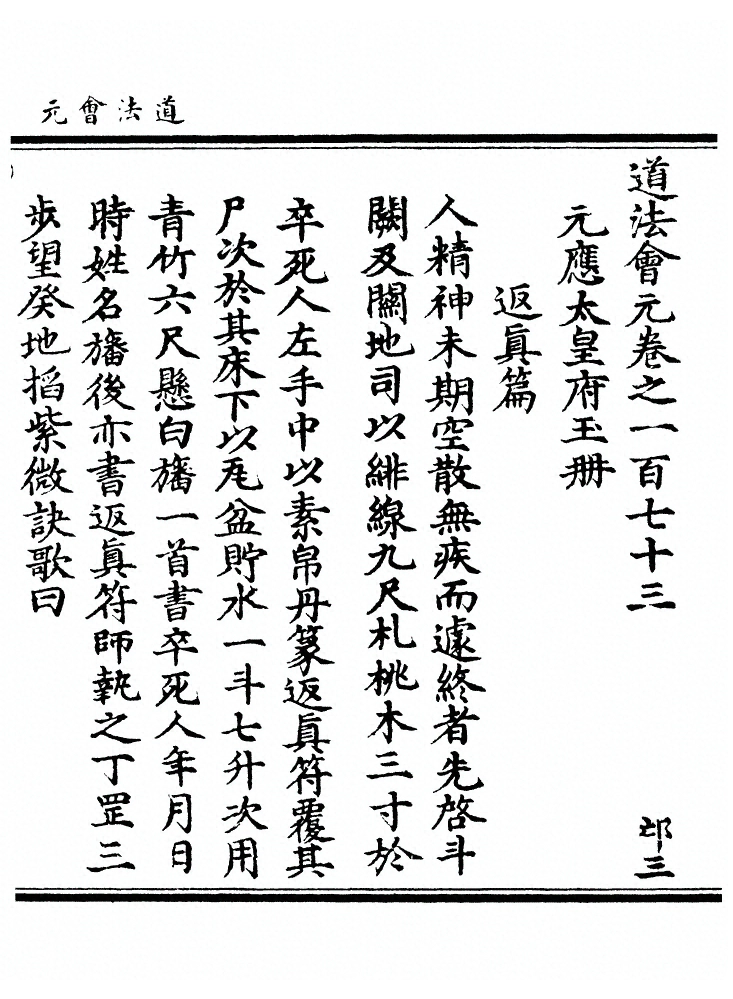 道法會元
道法會元卷之一百七十三 邙三
元應太皇府玉册
返眞篇
人精神未期空散無疾而遽終者先啓斗
闕及關地司以緋線九尺札桃木三寸於
卒死人左手中以素帛丹篆返眞符覆其
尸次於其床下以瓦盆貯水一斗七升次用
青竹六尺懸白旛一首書卒死人年月日
時姓名旛後亦書返眞符師執之丁罡三
步望癸地搯紫微訣歌曰